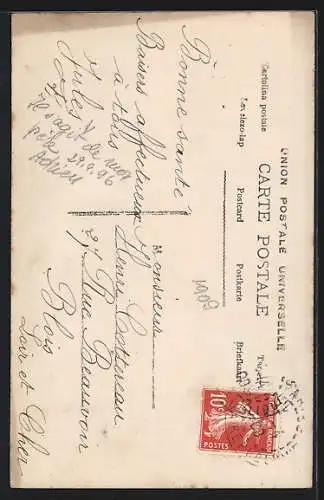 UNION POSTALE UNIVERSELLE
CARTE POSTALE
Postcard Postkarte
Levelezo-lap
Briefkaart
Cartolina postale
Bonne santé
Baisers affectueux
à tous
Jules
Il s'agit de mon
père
Adrien
29.9.96
1909
Monsieur
Henri
27 Rue Beauvoir
Blois
Loir et Cher
10c
POSTES